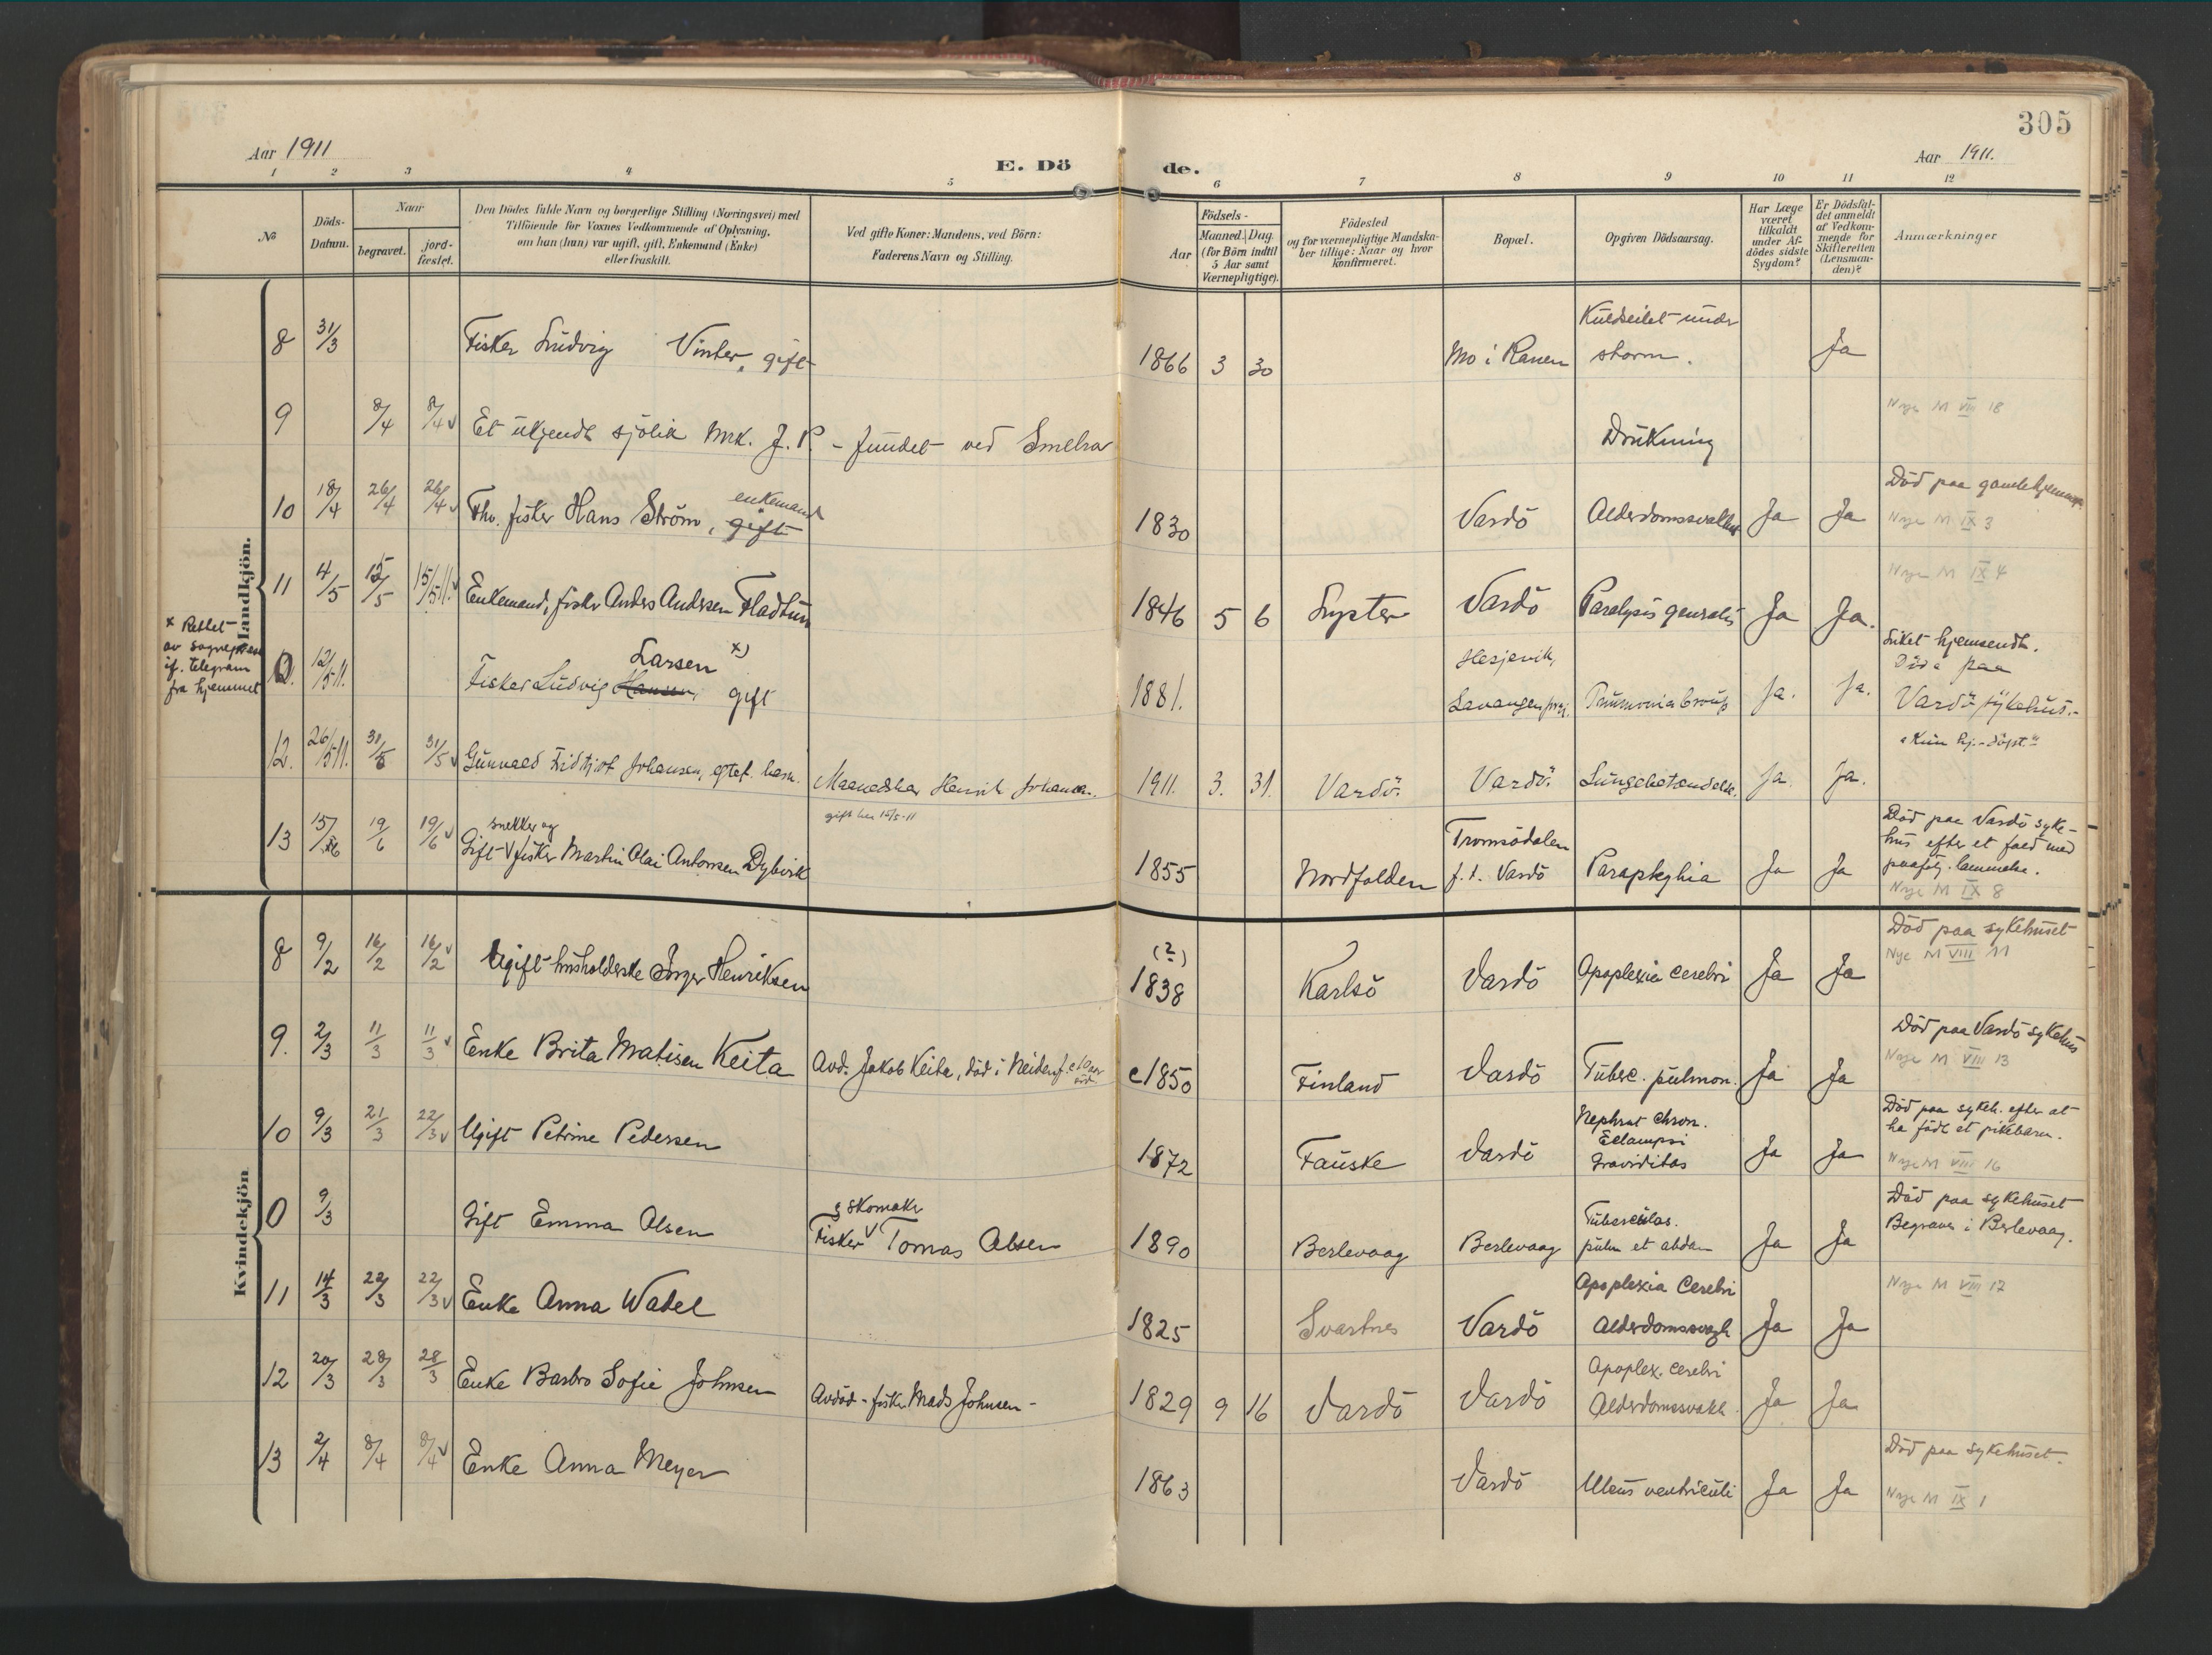 305
Aar 1911
E. Dö de.
Aar 1911.
1 2 3 4 5 6 7 8 9 10 11 12
No
Döds-Datum.
Naar
begravet.
jord-fæstet.
Den Dödes fulde Navn og borgerlige Stilling (Næringsvei) med
Tilföiende for Voxnes Vedkommende af Oplysning,
om han (hun) var ugift, gift, Enkemand (Enke)
eller fraskilt.
Ved gifte Koner: Mandens, ved Börn:
Faderens Navn og Stilling.
Födsels-
Aar
Maaned. Dag.
(for Börn indtil
5 Aar samt
Værnepligtige).
Födested
og for værnepligtige Mandska-
ber tillige: Naar og hvor
konfirmeret.
Bopæl.
Opgiven Dödsaarsag.
Har Læge
været
tilkaldt
under Af-
dödes sidste
Sygdom?
Er Dödsfal-
det anmeldt
af Vedkom-
mende for
Skifteretten
(Lensman-
den)?
Anmærkninger
Mandkjön.
8 31/3 Fisker Ludvig Vinter, gift 1866 3 30 Mo i Ranen Kuldseilet under storm. Ja
9 8/4 8/4 Et ukjendt sjölik mrk. J. P. - fundet ved Smelra Drukning Nye M VIII 18
10 18/4 26/4 26/4 Fhv. fisker Hans Ström, gift enkemand 1830 Vardö Alderdomssvakhet Ja Ja Död paa gamlehjemmet Nye M IX 3
11 4/5 15/5 15/5 11. Enkemand, fisker Anders Andersen Fladtun 1846 5 6 Lyster Vardö Paralysis generalis Ja Ja. Nye M IX 4
x Rettet
av sogneprest
if. telegram
fra hjemmet
0. 12/5 11. Fisker Ludvig Hansen Larsen x) gift 1881. Hesjevik, Lavangen præg. Pneumonia croup Ja. Ja. Liket hjemsendt. Död paa Vardö sykehus.-
12. 26/5 11. 31/5 31/5 Gunvald Fidtjof Johansen, egtef. barn. Maanedskar Henrik Johansen. gift her 15/5-11 1911. 3. 31. Vardö. Vardö. Lungebetændelse. Ja. Ja. "Kun hj.-döpt"
13 15/6 19/6 19/6 Gift snekker og fisker Martin Olai Antonsen Dybvik 1855 Nordfolden Tromsödalen f. t. Vardö Paraplegia Ja Ja Död paa Vardö syke-
hus efter et fald med
paafölg. lammelse.
Nye M IX 8
Kvindekjön
8 9/2 16/2 16/2 Ugift husholderske Inger Henriksen (?) 1838 Karlsö Vardö Apoplexia cerebri Ja Ja Död paa sykehuset Nye M VIII 11
9. 2/3 11/3 11/3 Enke Brita Matisen Keita Avd. Jakob Keita, död i Neiden f. c 10 aar sid. c1850 Finland Vardö Tuberc. pulmon. Ja Ja Död paa Vardö sykehus Nye M VIII 13
10 9/3 21/3 22/3 Ugift Petrine Pedersen 1872 Fauske Vardö Nephrit chron. Eclampsi Graviditas Ja Ja Död paa sykeh. efter at
ha födt et pikebarn.
Nye M VIII 16
0 9/3 Gift Emma Olsen Fisker & skomaker Tomas Olsen 1890 Berlevaag Berlevaag Tuberculos. pulm et abdom Ja Ja Död paa sykehuset
Begraves i Berlevaag.
11 14/3 22/3 22/3 Enke Anna Wadel 1825 Svartnes Vardö Apoplexia Cerebri Alderdomssvagh Ja Ja Nye M VIII 17
12 20/3 28/3 28/3 Enke Barbro Sofie Johnsen Avdöd - fisker Mads Johnsen - 1829 9 16 Vardö Vardö Apoplex. cerebri Alderdomssvakh. Ja Ja
13 2/4 8/4 8/4 Enke Anna Meyer 1863 Vardö Ulcus ventriculi Ja Ja Död paa sykehuset. Nye M IX 1